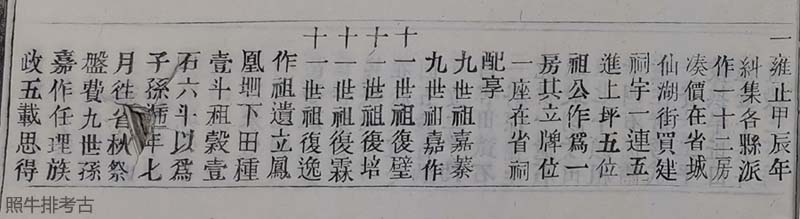 一雍止甲辰年
糾集各縣派
作一十二房
凑價在省城
仙湖街買建
祠宇一連五
進上坪五位
祖公作爲一
房其立牌位
一座在省祠
配享
九世祖嘉蓁
九世祖嘉作
十一世祖復壁
十一世祖復培
十一世祖復霖
十一世祖復逸
作祖遺立鳳
凰圳下田種
壹斗租穀壹
石六斗以爲
子孫遞年七
月往省秋祭
盤費九世孫
嘉作任理族
政五載思得
照牛排考古